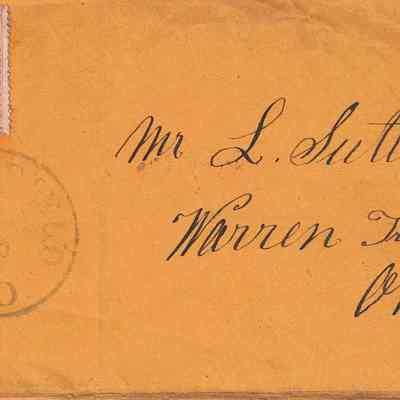 Mr L. Sutl
Warren Tr
O